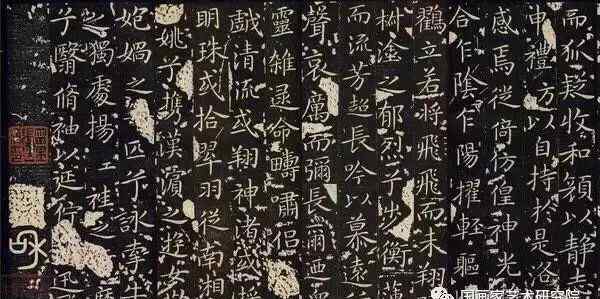 而狐疑收和顔以静志
申禮防以自持於是洛
感焉徙倚仿偟神光
合乍陰乍陽擢輕軀
鸖立若將飛飛而未翔
椒塗之郁烈兮步衡薄
而流芳超長吟以慕遠
聲哀厲而彌長爾迺
靈雜遝命疇嘯侶
戯清流或翔神渚或
明珠或拾翠羽從南湘
兮攜漢濱之遊女
媧之匹兮詠牽牛
之獨處揚袿之
兮翳脩袖以延佇迅
国画家艺术研究院